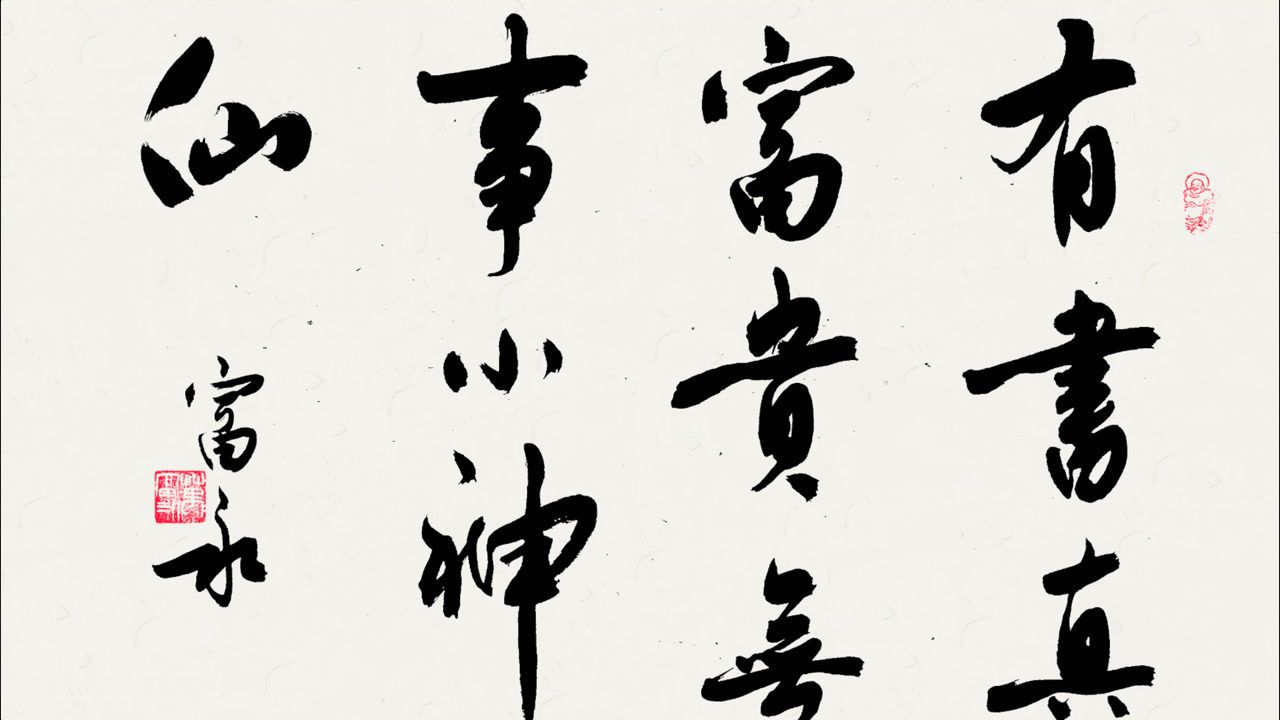 有書真
富貴無
事小神
仙
富永